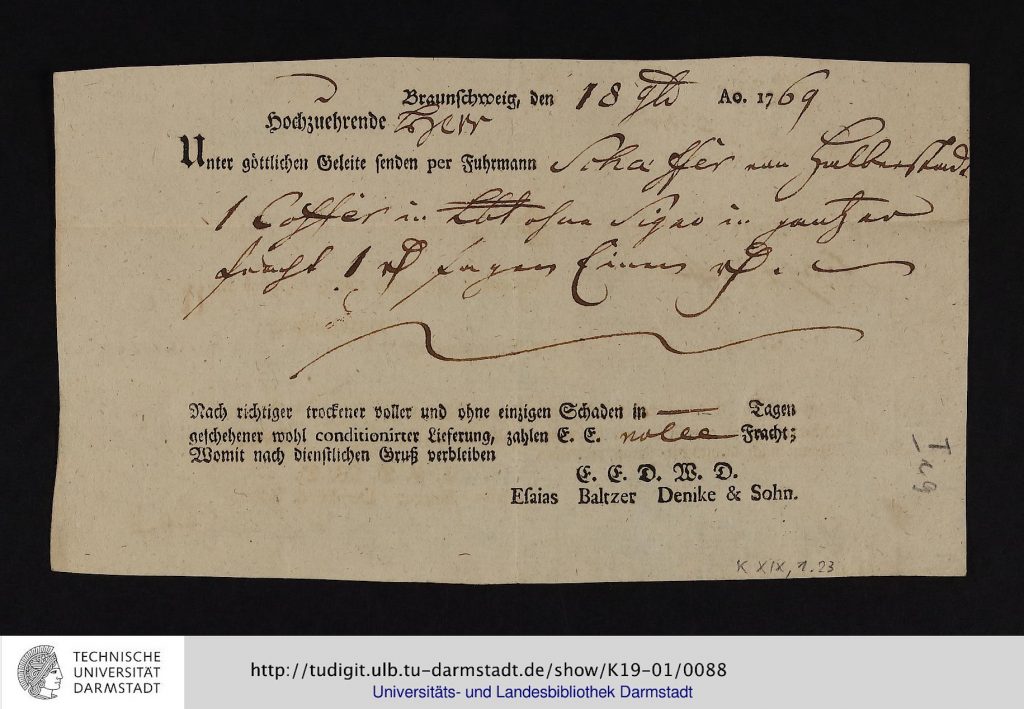 Braunschweig, den 18 9br Ao. 1769
Hochzuehrende Herr
Unter göttlichen Geleite senden per Fuhrmann Schäffer von Halberstadt
1 Coffer in ohne Signo in gantzer
fracht 1 rth sagen Einen rth.
Nach richtiger trockener voller und ohne einzigen Schaden in — Tagen
geschehener wohl conditionirter Lieferung, zahlen E. E. volle Fracht;
Womit nach dienstlichen Gruß verbleiben
E. E. D. W. D.
Esaias Baltzer Denike & Sohn.
K XIX, 1.23
TECHNISCHE
UNIVERSITÄT
DARMSTADT
http://tudigit.ulb.tu-darmstadt.de/show/K19-01/0088
Universitäts- und Landesbibliothek Darmstadt